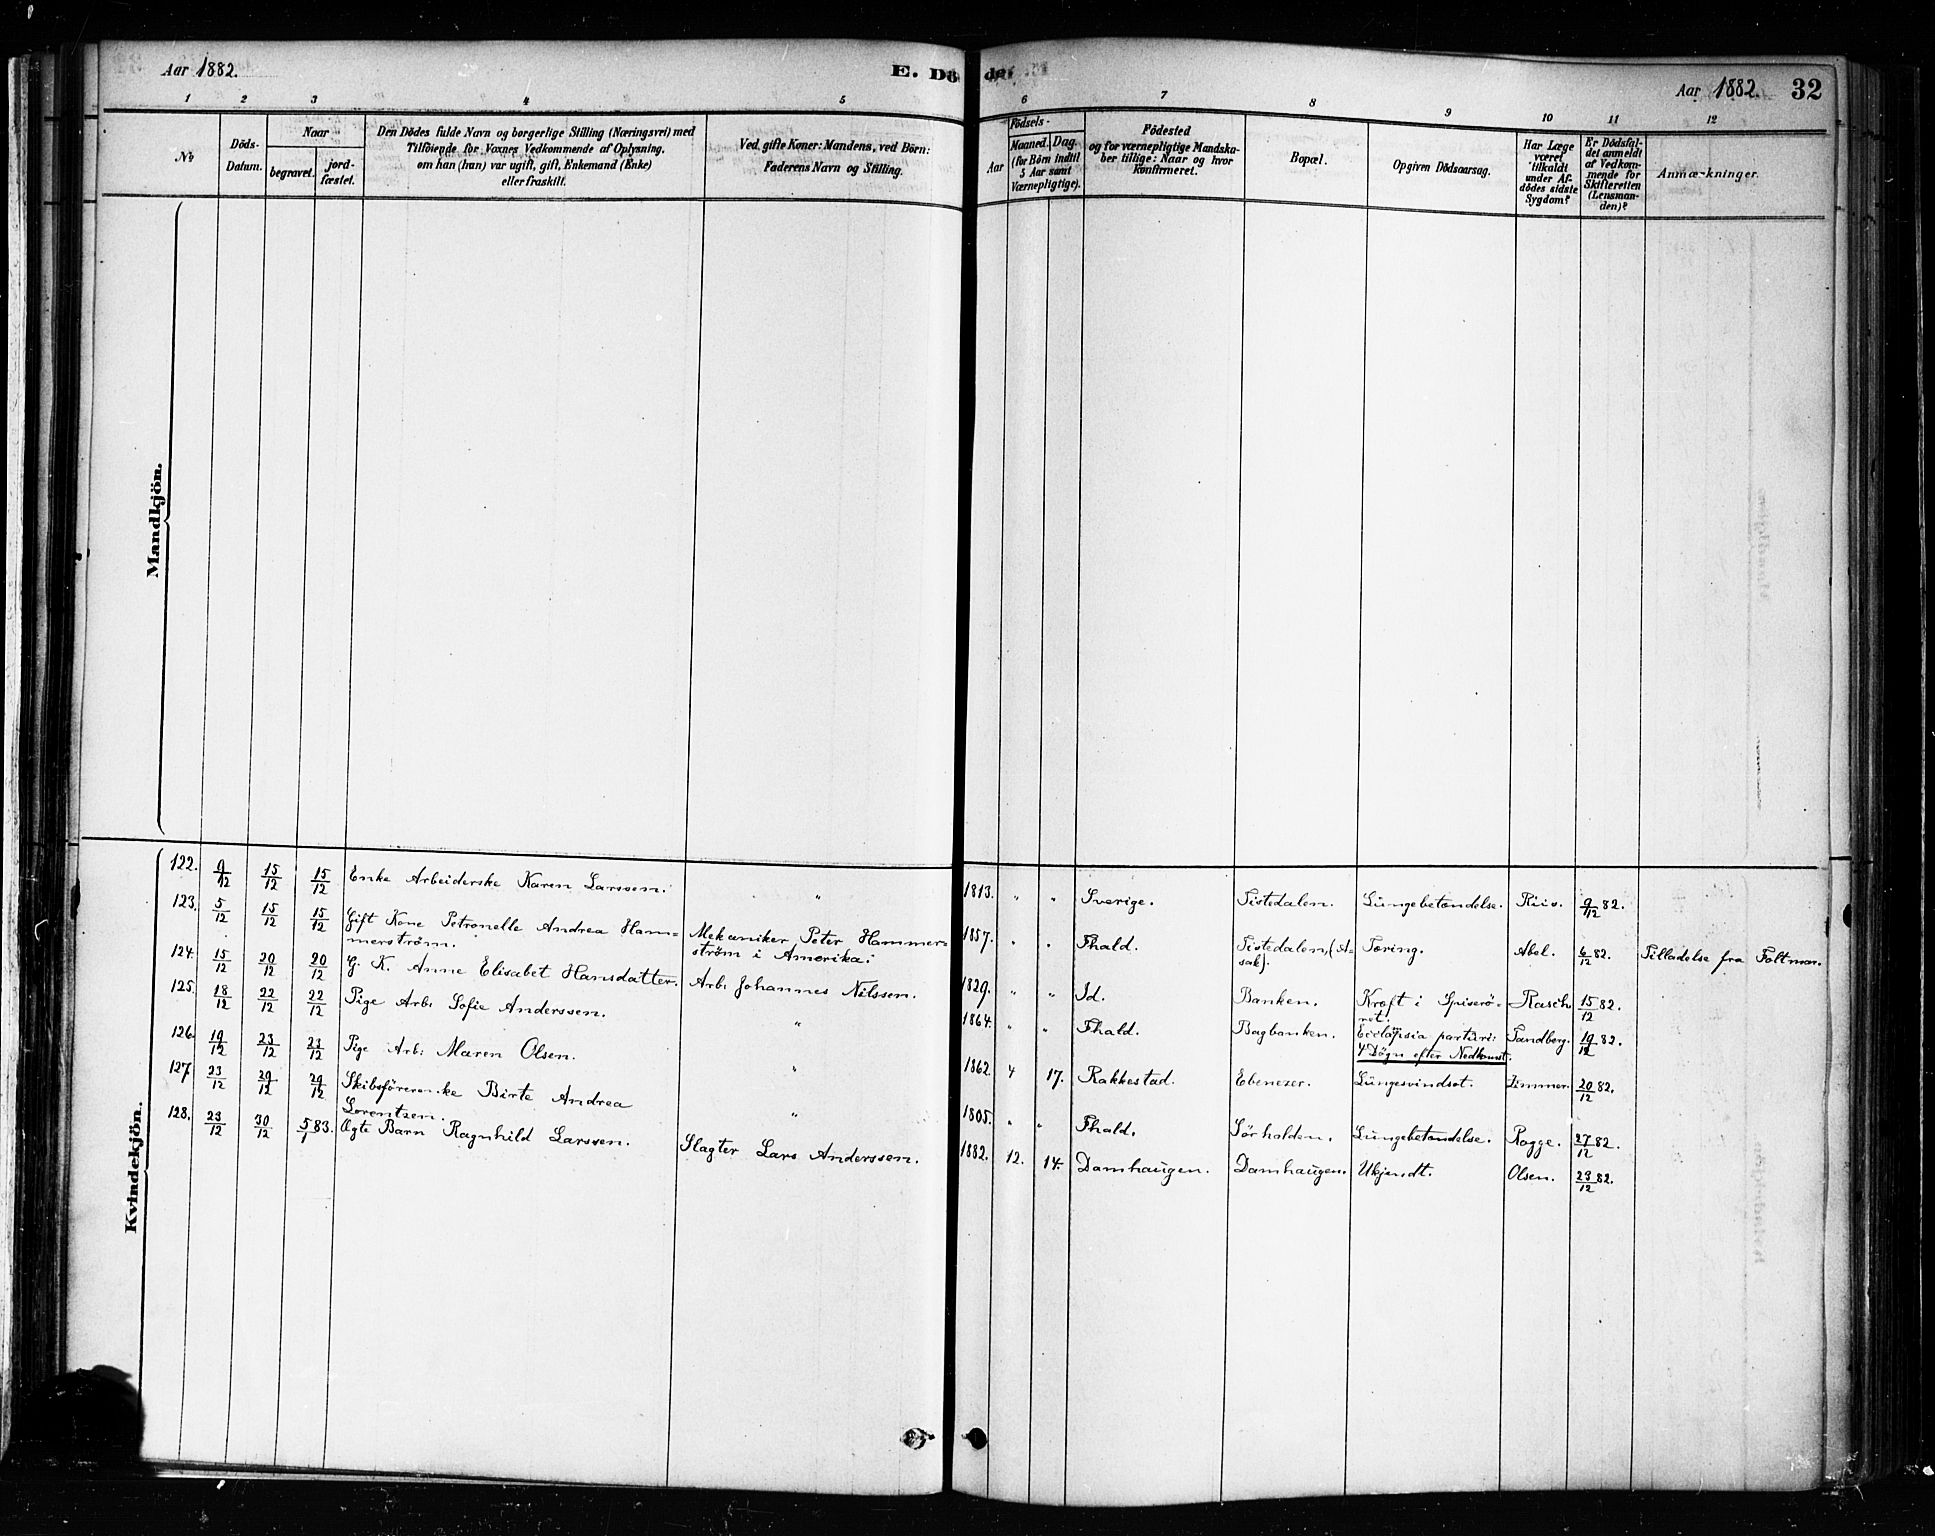 Aar 1882.
E. Döde.
Aar 1882. 32
1 2 3 4 5 6 7 8 9 10 11 12
No
Döds-
Datum.
Naar
begravet.
jord-
fæstet.
Den Dödes fulde Navn og borgerlige Stilling (Næringsvei) med
Tilföiende for Voxnes Vedkommende af Oplysning.
om han (hun) var ugift, gift, Enkemand (Enke)
eller fraskilt.
Ved gifte Koner: Mandens, ved Börn:
Faderens Navn og Stilling.
Födsels-
Aar
Maaned.
Dag.
(for Börn indtil
5 Aar samt
Værnepligtige).
Födested
og for værnepligtige Mandska-
ber tillige: Naar og hvor
konfirmeret.
Bopæl.
Opgiven Dödsaarsag.
Har Læge
været
tilkaldt
under Af-
dödes sidste
Sygdom?
Er Dödsfal-
det anmeldt
af Vedkom-
mende for
Skifteretten
(Lensman-
den)?
Anmærkninger.
Mandkjön.
Kvindekjön.
122. 9/12 15/12 15/12 Enke Arbeiderske Karen Larssen. " 1813. " " Sverige. Tistedalen. Lungebetændelse. Riis. 9/12 82.
123. 5/12 15/12 15/12 Gift Kone Petronelle Andrea Ham-
merström. Mekaniker Peter Hammer-
ström i Amerika. 1857. " " Fhald. Tistedalen, (A-
sak). Tæring. Abel. 6/12 82. Tilladelse fra Foltmar.
124. 15/12 20/12 20/12 G. K. Anne Elisabet Hansdatter. Arb: Johannes Nilssen. 1829. " " Id. Banken. Kræft i Spiserö-
ret. Rasch 15/12 82.
125. 18/12 22/12 22/12 Pige Arb: Sofie Anderssen. " 1864. " " Fhald. Bagbanken. Eclapsia parturi:
4 Dögn efter Nedkomst. Sandberg. 19/12 82.
126. 19/12 23/12 23/12 Pige Arb: Maren Olsen. " 1862. 4 17. Rakkestad. Ebenezer. Lungesvindsot. Zimmer. 20/12 82.
127. 23/12 29/12 29/12 Skibsförerenke Birte Andrea
Lorentzen. " 1805. " " Fhald. Sörhalden. Lungebetændelse. Rogge. 27/12 82.
128. 23/12 30/12 5/1 83. Ægte Barn Ragnhild Larssen. Slagter Lars Anderssen. 1882. 12. 14. Damhaugen. Damhaugen. Ukjendt. Olsen. 23/12 82.